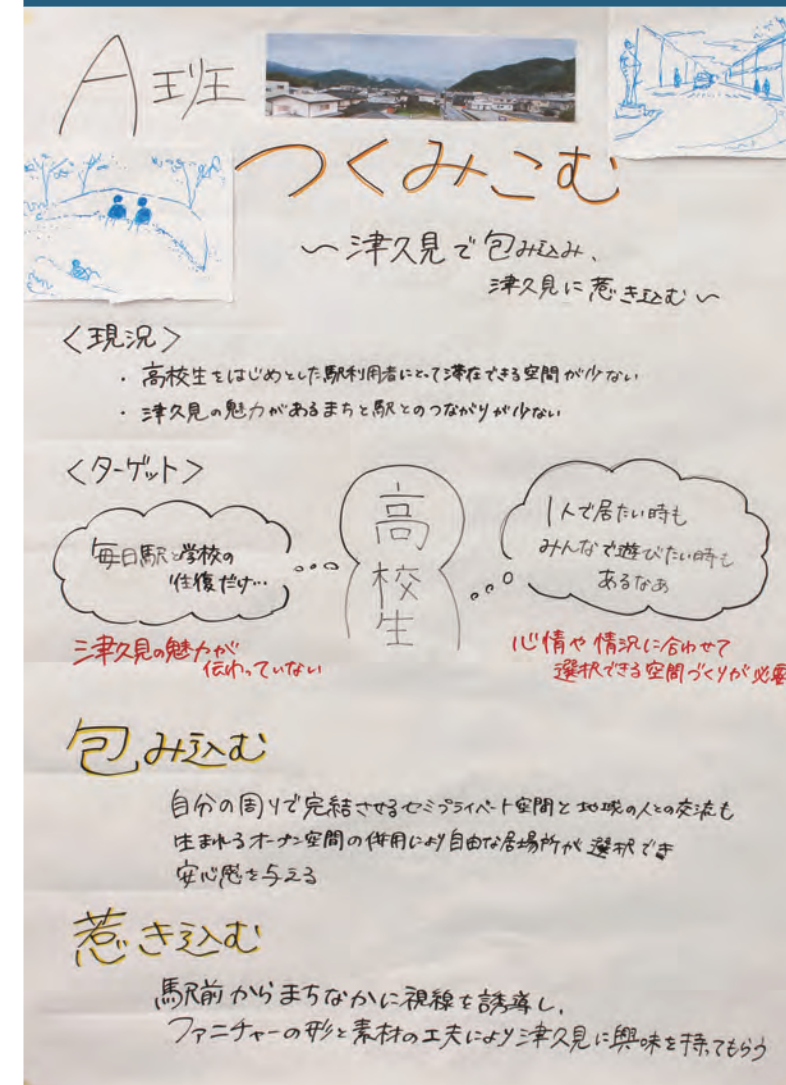 A班
つくみこむ
〜津久見で包み込み、
津久見に惹き込む〜
<現況>
・高校生をはじめとした駅利用者にとって滞在できる空間が少ない
・津久見の魅力があるまちと駅とのつながりが少ない
<ターゲット>
毎日駅と学校の
往復だけ…
高校生
1人で居たい時も
みんなで遊びたい時も
あるなあ
津久見の魅力が
伝わっていない
心情や情況に合わせて
選択できる空間づくりが必要
包み込む
自分の周りで完結させるセミプライベート空間と地域の人との交流も
生まれるオープン空間の併用により自由な居場所が選択でき
安心感を与える
惹き込む
駅前からまちなかに視線を誘導し、
ファニチャーの形と素材の工夫により津久見に興味を持ってもらう